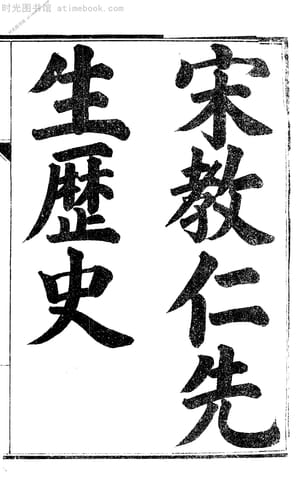 时光图书馆 www.atimebook.com
宋教仁先
生歷史